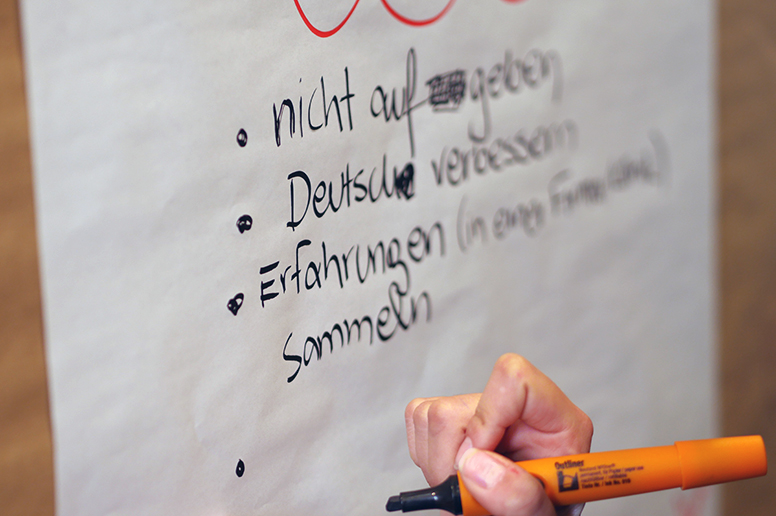 nicht aufgeben
Deutsch verbessern
Erfahrungen (in einer
sammeln
Outliner